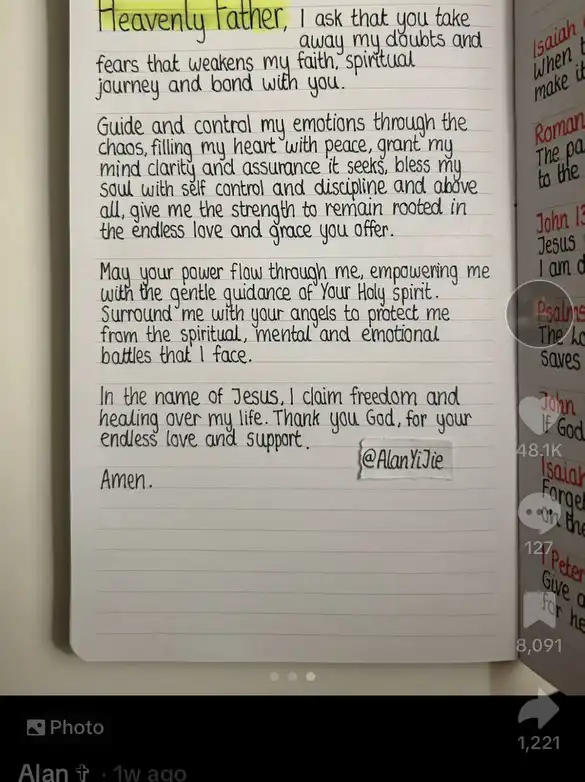 Heavenly Father, I ask that you take
away my doubts and
fears that weakens my faith, spiritual
journey and bond with you.
Guide and control my emotions through the
chaos, filling my heart with peace, grant my
mind clarity and assurance it seeks, bless my
soul with self control and discipline and above
all, give me the strength to remain rooted in
the endless love and grace you offer.
May your power flow through me, empowering me
with the gentle guidance of Your Holy Spirit.
Surround me with your angels to protect me
from the spiritual, mental and emotional
battles that I face.
In the name of Jesus, I claim freedom and
healing over my life. Thank you God, for your
endless love and support.
@AlanYiJie
Amen.
Isaiah
When t
make it
Roman
The pa
to the
John 13
Jesus
I am d
Psalms
The Lo
saves
John
If God
Isaiah
Forge
on the
1 Peter
Give a
for he
48.1K
127
8,091
1,221
Photo
Alan ✝ · 1w ago